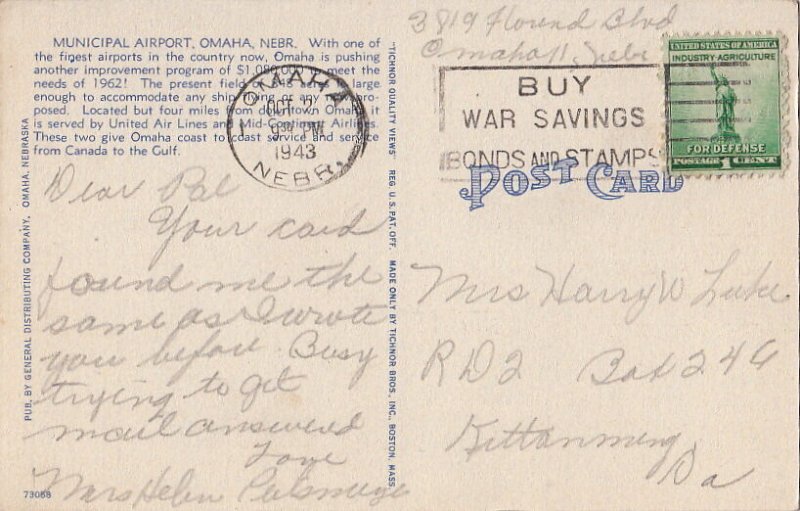 MUNICIPAL AIRPORT, OMAHA, NEBR. With one of
the finest airports in the country now, Omaha is pushing
another improvement program of $1,080,000 to meet the
needs of 1962! The present field is large
enough to accommodate any ship flying or any now pro-
posed. Located but four miles from downtown Omaha, it
is served by United Air Lines and Mid-Continent Airlines.
These two give Omaha coast to coast service and service
from Canada to the Gulf.
Dear Pal
Your card
found me the
same as I wrote
you before. Busy
trying to get
mail answered
Love
Mrs Helen
73068
PUB. BY GENERAL DISTRIBUTING COMPANY, OMAHA, NEBRASKA
"TICHNOR QUALITY VIEWS" REG. U. S. PAT. OFF. MADE ONLY BY TICHNOR BROS., INC., BOSTON, MASS.
OMAHA
OCT 7
9 30 PM
1943
NEBR.
3819 Blvd
Omaha 11, Nebr
BUY
WAR SAVINGS
BONDS AND STAMPS
UNITED STATES OF AMERICA
INDUSTRY-AGRICULTURE
FOR DEFENSE
POSTAGE 1 CENT
POST CARD
Mrs Harry W Luke
RD 2 Box 246
Kittanning
Pa